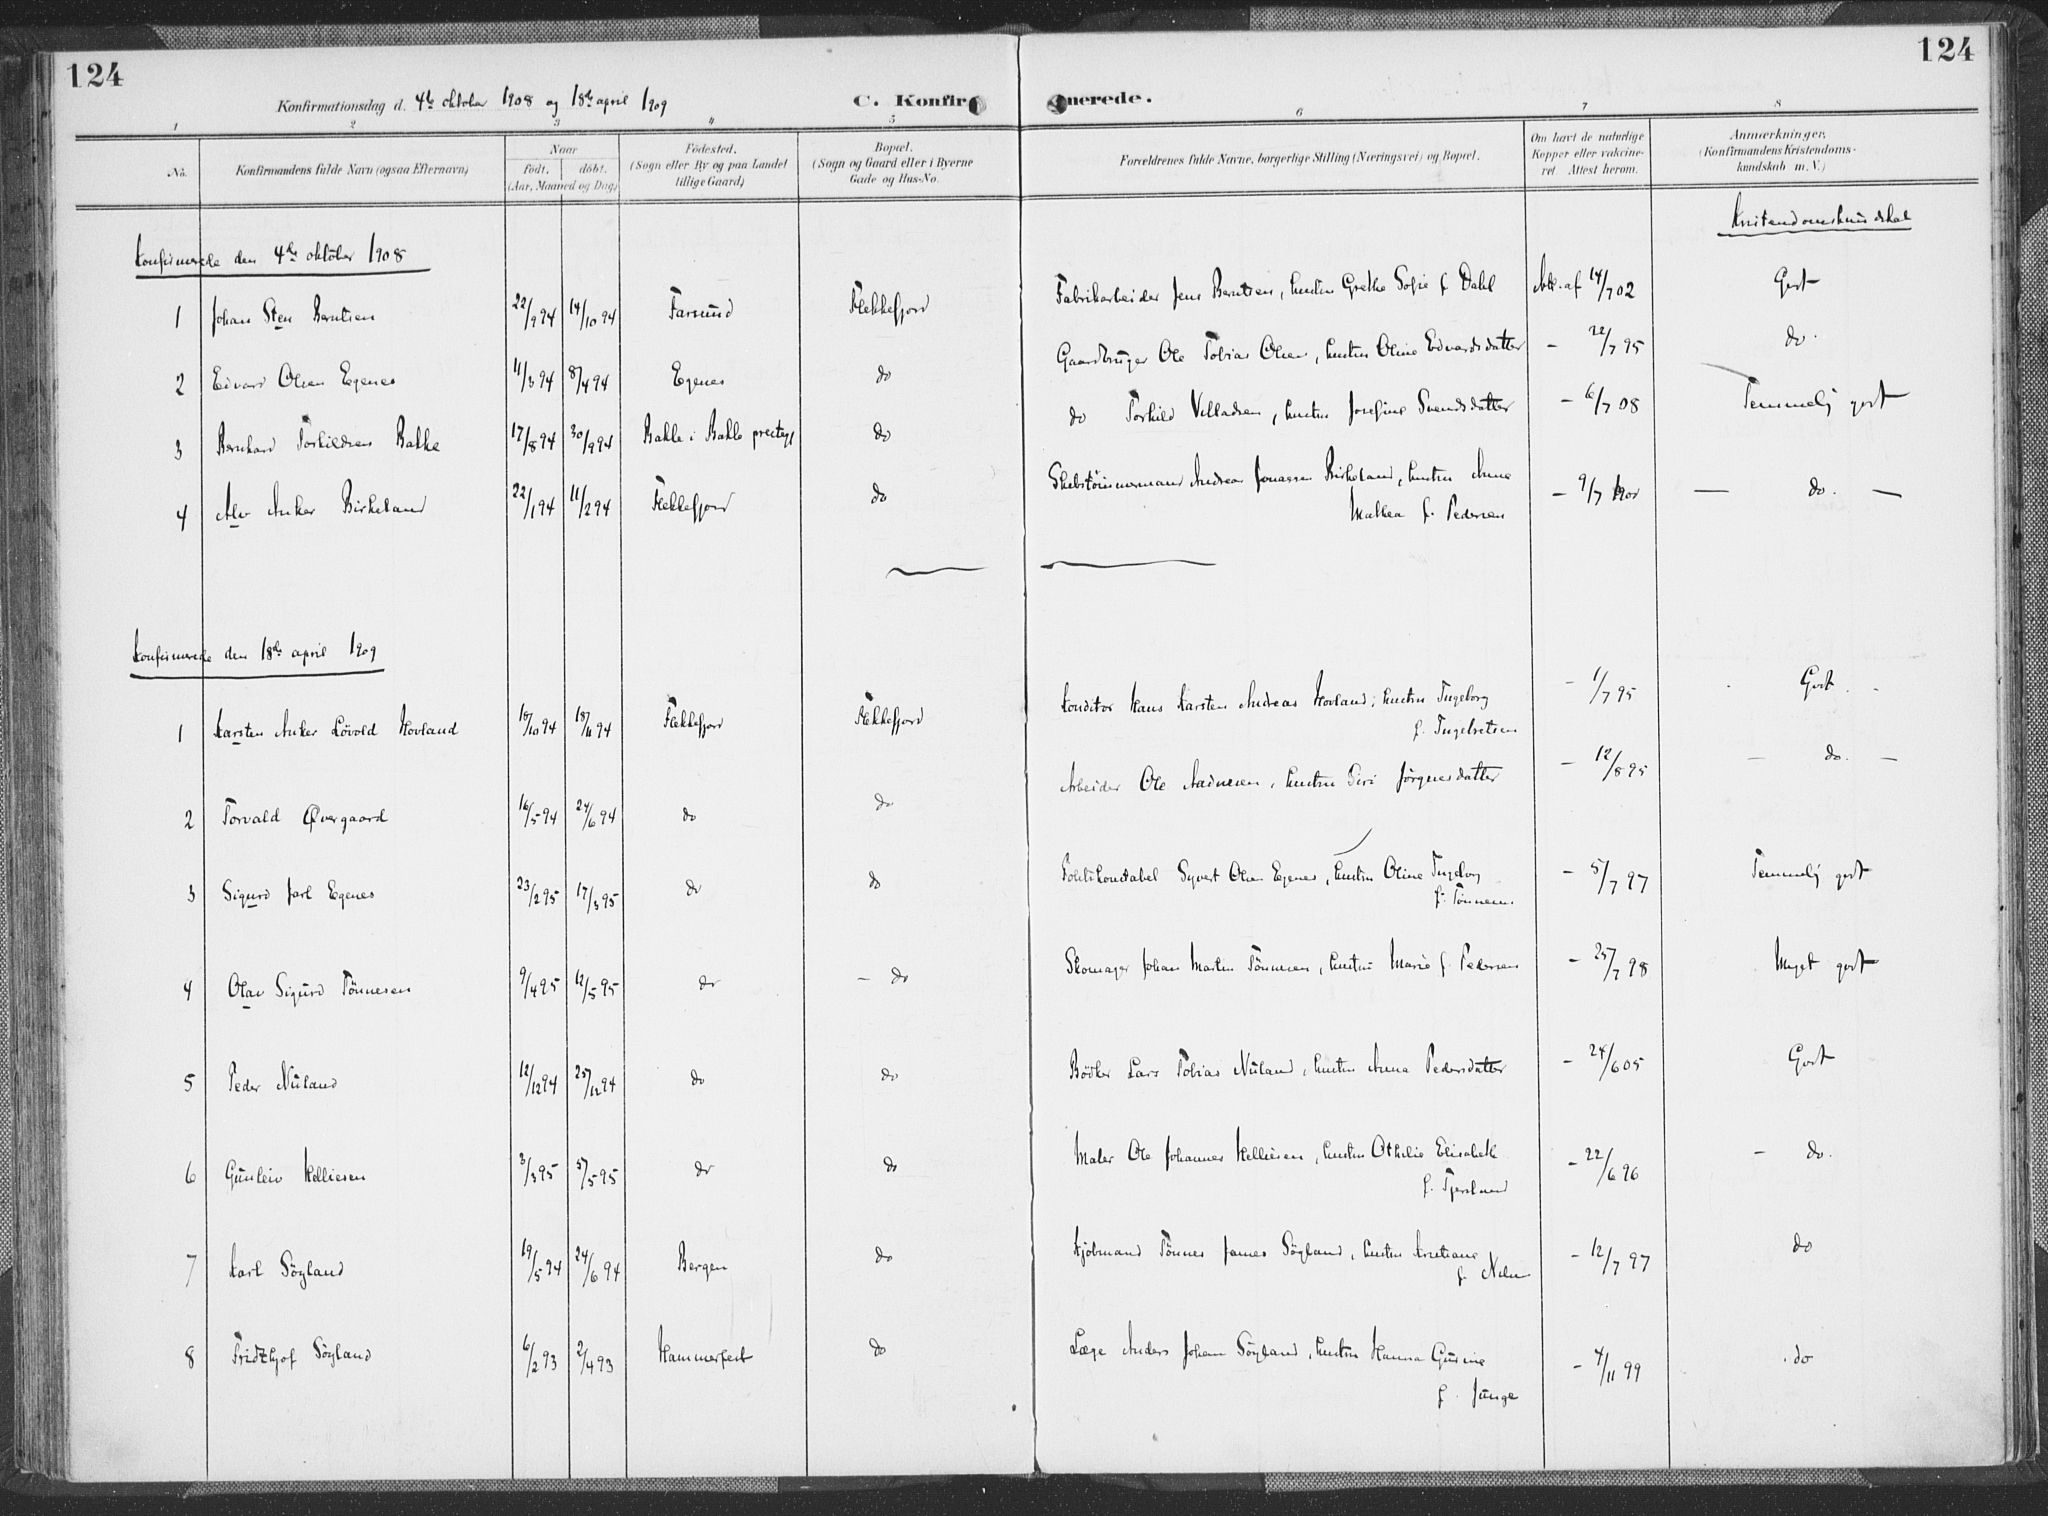 124
124
Konfirmationsdag d. 4de oktober 1908 og 18de april 1909
C. Konfir merede.
1 2 3 4 5 6 7 8
No.
Konfirmandens fulde Navn (ogsaa Efternavn)
Naar
födt. döbt.
(Aar, Maaned og Dag)
Födested.
(Sogn eller By og paa Landet
tillige Gaard)
Bopæl.
(Sogn og Gaard eller i Byerne
Gade og Hus-No.
Forældrenes fulde Navne, borgerlige Stilling (Næringsvei) og Bopæl.
Om havt de naturlige
Kopper eller vakcine-
ret Attest herom.
Anmærkninger,
(Konfirmandens Kristendoms-
kundskab m. V.)
Kristendomskundskab
Konfirmerede den 4de oktober 1908
1 Johan Sten Berntsen 22/9 94 14/10 94 Farsund Flekkefjord Fabrikarbeider Jens Berntsen, hustru Grethe Sofie f. Dahl Att. af 14/7 02 Godt
2 Edvard Olsen Egenes 11/3 94 8/4 94 Egenes do Gaardbruger Ole Tobias Olsen, hustru Oline Edvardsdatter - 22/7 95 do.
3 Bernhard Torkildsen Bakke 17/8 94 30/9 94 Bakke i Bakke prestegj do do Torkild Villadsen, hustru Josefine Svendsdatter - 6/7 08 Temmelig godt
4 Alv Anker Birkeland 22/1 94 11/2 94 Flekkefjord do Skibstömmermand Andreas Jonassen Birkeland, hustru Anne
Mathea f. Pedersen - 9/7 — do. —
Konfirmerede den 18de april 1909
1 Karsten Anker Lövold Hovland 18/10 94 18/11 94 Flekkefjord Flekkefjord Konditor Hans Karsten Andreas Hovland, hustru Ingeborg
f. Ingebretsen - 1/7 95 Godt
2 Torvald Øvergaard 16/5 94 24/6 94 do do Arbeider Ole Aadnesen, hustru Siri Jörgensdatter - 12/8 95 — do. —
3 Sigurd Jarl Egenes 23/2 95 17/3 95 do do Politikonstabel Syvert Olsen Egenes, hustru Oline Ingeborg
f. Tönnesen - 5/7 97 Temmelig godt
4 Olav Sigurd Tönnesen 9/4 95 12/5 95 do - do Skomager Johan Martin Tönnesen, hustru Marie f. Pedersen - 25/7 98 Meget godt
5 Peder Nuland 12/12 94 25/12 94 do do Bödker Lars Tobias Nuland, hustru Anna Pedersdatter - 24/6 05 Godt
6 Gunleiv Kelliesen 3/3 95 5/5 95 do do Maler Ole Johannes Kelliesen, hustru Othilie Elisabeth
f. Fjersland - 22/6 96 - do.
7 Karl Söyland 19/5 94 24/6 94 Bergen do Kjöbmand Tönnes James Söyland, hustru Kristiane
f. - 12/7 97 do
8 Fridthjof Söyland 6/2 93 2/4 93 Hammerfest do Læge Anders Johan Söyland, hustru Hanna Gurine
f. Junge - 4/11 99 do